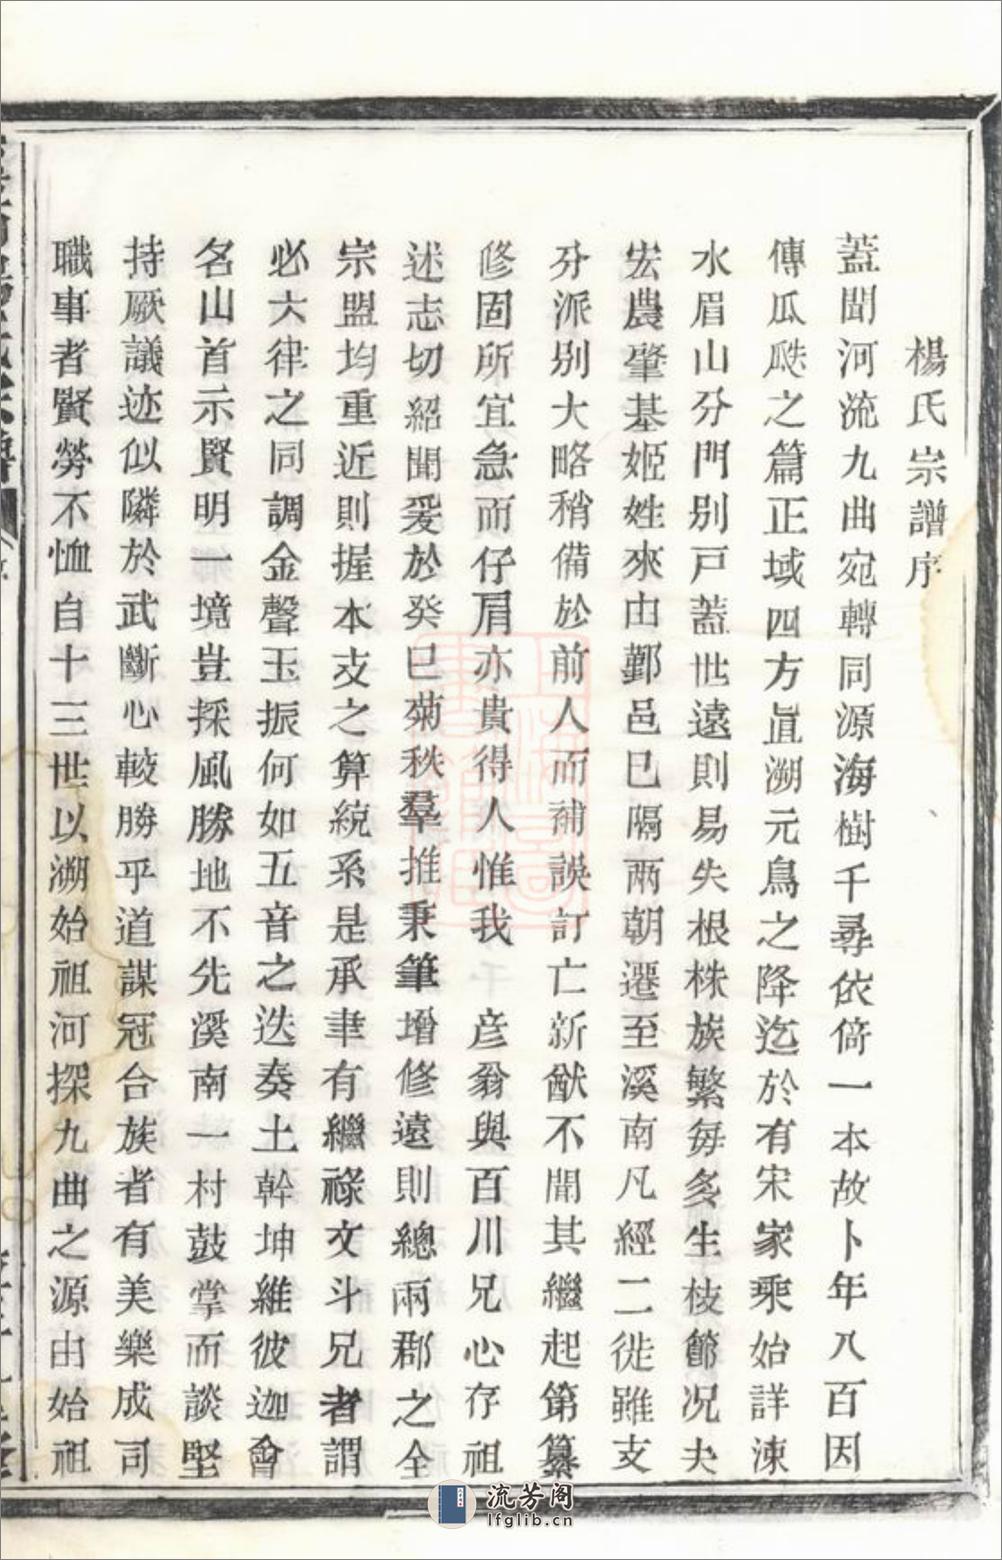 楊氏宗譜序
蓋聞河流九曲宛轉同源海樹千尋依倚一本故卜年八百因
傳瓜瓞之篇正域四方直溯元鳥之降迄於有宋家乘始詳涑
水眉山分門别戸蓋世遠則易失根株族繁每多生枝節况夫
宏農肇基姬姓來由鄞邑巳隔兩朝遷至溪南凡經二徙雖支
分派别大略稍備於前人而補誤訂亡新猷不聞其繼起第纂
修固所宜急而仔肩亦貴得人惟我 彦翁與百川兄心存祖
述志切紹聞爰於癸巳菊秩羣推秉筆增修遠則總兩郡之全
宗盟均重近則握本支之算統系是承聿有繼祿文斗兄者謂
必六律之同調金聲玉振何如五音之迭奏土幹坤維彼迦會
名山首示賢明一境豈採風勝地不先溪南一村鼓掌而談堅
持厥議迹似隣於武斷心較勝乎道謀冠台族者有美樂成司
職事者賢勞不恤自十三世以溯始祖河探九曲之源由始祖
流芳阁
lfglib.cn